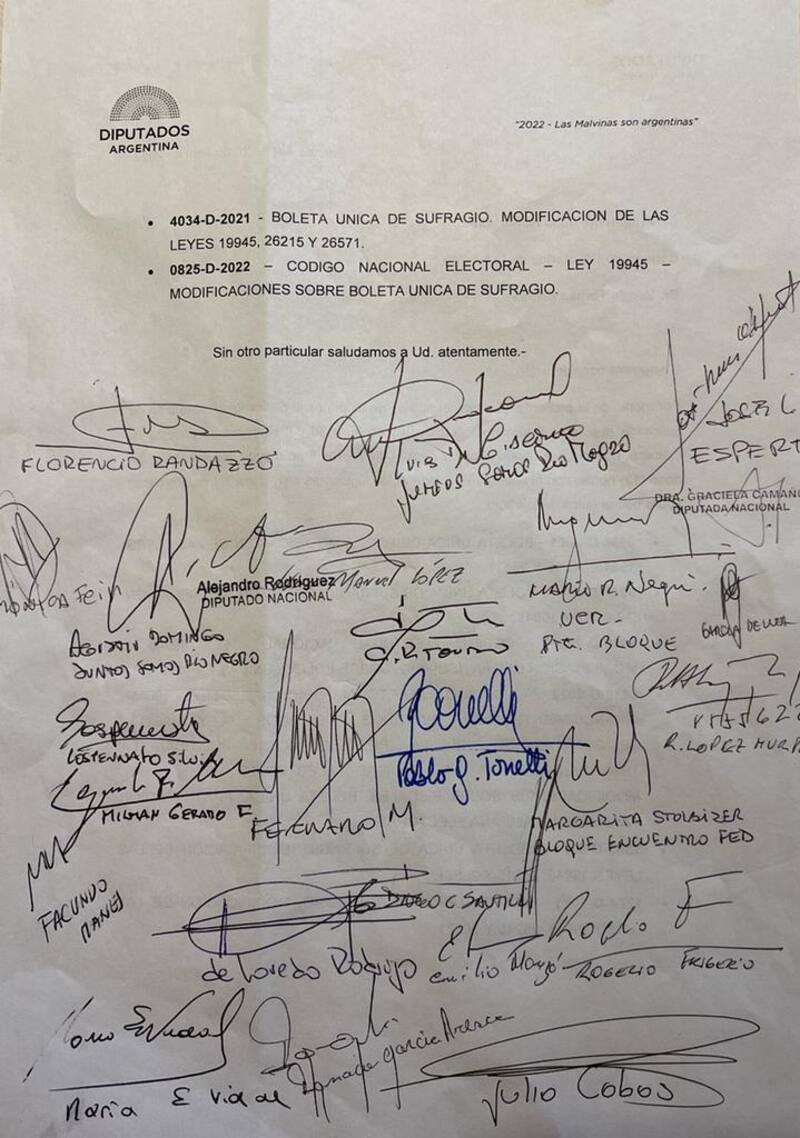 DIPUTADOS
ARGENTINA
"2022 - Las Malvinas son argentinas"
• 4034-D-2021 - BOLETA UNICA DE SUFRAGIO. MODIFICACION DE LAS
LEYES 19945, 26215 Y 26571.
• 0825-D-2022 – CODIGO NACIONAL ELECTORAL – LEY 19945 –
MODIFICACIONES SOBRE BOLETA UNICA DE SUFRAGIO.
Sin otro particular saludamos a Ud. atentamente.-
FLORENCIO RANDAZZO
Luis Di Giacomo
Juntos Somos Rio Negro
JOSE L
ESPERT
DRA. GRACIELA CAMAÑO
DIPUTADA NACIONAL
MÓNICA FEIN
Alejandro Rodríguez
DIPUTADO NACIONAL
MANUEL LÓPEZ
AGUSTÍN DOMINGO
JUNTOS SOMOS RIO NEGRO
MARIO R. NEGRI.
UCR-
PTE. BLOQUE
LOSPENNATO SILVIA
MILMAN GERARDO F
M.
Tonelli
Pablo G. Tonelli
R. LOPEZ MURPH
MARGARITA STOLBIZER
BLOQUE ENCUENTRO FED
FACUNDO
MANES
DIEGO C SANTILLI
de Loredo Rodrigo
Emilio Monzó
Rogelio F
ROGELIO FRIGERIO
María E Vidal
Maria E Vidal
Julio Cobos